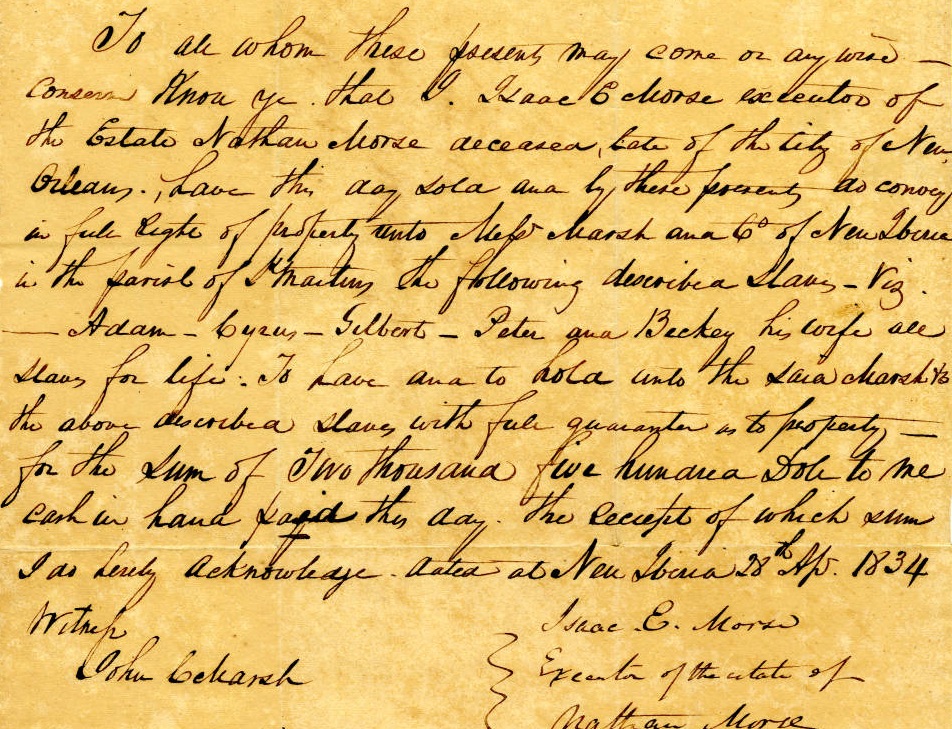 To all whom these presents may come or any wise —
Concern Know ye that I. Isaac E Morse executor of
the Estate Nathan Morse deceased, late of the City of New
Orleans, have this day sold and by these presents do convey
in full Right of property unto Messrs Marsh and Co of New Iberia
in the parish of St Martins the following described Slaves – Viz.
— Adam – Cyrus – Gilbert – Peter and Beckey his wife all
slaves for life. To have and to hold unto the said Marsh & Co
the above described slaves with full guarantee as to property —
for the sum of Two thousand five hundred Dolls to me
cash in hand paid this day. The Receipt of which sum
I do hereby acknowledge. dated at New Iberia 28th Ap. 1834
Witness
Isaac E. Morse
John C Marsh
Executor of the estate of
Nathan Morse